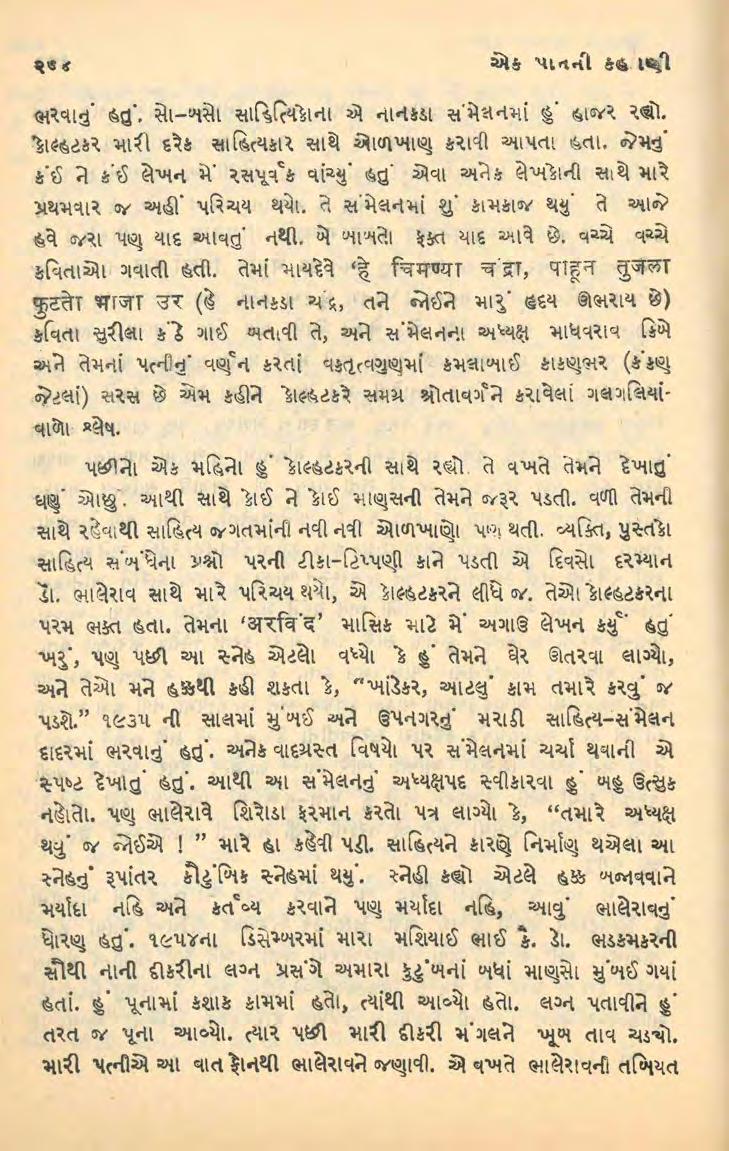 ૨૭૪ એક પાનની કહાણી
ભરવાનું હતું. સો-બસો સાહિત્યિકોના એ નાનકડા સંમેલનમાં હું હાજર રહ્યો.
કોલ્હટકર મારી દરેક સાહિત્યકાર સાથે ઓળખાણ કરાવી આપતા હતા. જેમનું
કંઈ ને કંઈ લેખન મેં રસપૂર્વક વાંચ્યું હતું એવા અનેક લેખકોની સાથે મારે
પ્રથમવાર જ અહીં પરિચય થયો. તે સંમેલનમાં શું કામકાજ થયું તે આજે
હવે જરા પણ યાદ આવતું નથી. બે બાબતો ફક્ત યાદ આવે છે. વચ્ચે વચ્ચે
કવિતાઓ ગવાતી હતી. તેમાં માયદેવે ‘હે चिमण्या चंद्रा, पाहून तुजला
फुटतो भाजा उर (હે નાનકડા ચંદ્ર, તને જોઈને મારું હૃદય ઊભરાય છે)
કવિતા સુરીલા કંઠે ગાઈ બતાવી તે, અને સંમેલનના અધ્યક્ષ માધવરાવ કિબે
અને તેમનાં પત્નીનું વર્ણન કરતાં વક્તૃત્વગુણમાં કમલાબાઈ કાકણભર (કંકણ
જેટલાં) સરસ છે એમ કહીને કોલ્હટકરે સમગ્ર શ્રોતાવર્ગને કરાવેલાં ગલગલિયાં-
વાળો શ્લેષ.
પછીનો એક મહિનો હું કોલ્હટકરની સાથે રહ્યો. તે વખતે તેમને દેખાતું
ઘણું ઓછું. આથી સાથે કોઈ ને કોઈ માણસની તેમને જરૂર પડતી. વળી તેમની
સાથે રહેવાથી સાહિત્ય જગતમાંની નવી નવી ઓળખાણો પણ થતી. વ્યક્તિ, પુસ્તકો
સાહિત્ય સંબંધેના પ્રશ્નો પરની ટીકા-ટિપ્પણી કાને પડતી એ દિવસો દરમ્યાન
ડૉ. ભાલેરાવ સાથે મારે પરિચય થયો, એ કોલ્હટકરને લીધે જ. તેઓ કોલ્હટકરના
પરમ ભક્ત હતા. તેમના ‘अरविंद’ માસિક માટે મેં અગાઉ લેખન કર્યું હતું
ખરું, પણ પછી આ સ્નેહ એટલો વધ્યો કે હું તેમને ઘેર ઊતરવા લાગ્યો,
અને તેઓ મને હક્કથી કહી શકતા કે, “ખાંડેકર, આટલું કામ તમારે કરવું જ
પડશે.” ૧૯૩૫ ની સાલમાં મુંબઈ અને ઉપનગરનું મરાઠી સાહિત્ય-સંમેલન
દાદરમાં ભરવાનું હતું. અનેક વાદગ્રસ્ત વિષયો પર સંમેલનમાં ચર્ચા થવાની એ
સ્પષ્ટ દેખાતું હતું. આથી આ સંમેલનનું અધ્યક્ષપદ સ્વીકારવા હું બહુ ઉત્સુક
નહોતો. પણ ભાલેરાવે શિરોડા ફરમાન કરતો પત્ર લાગ્યો કે, “તમારે અધ્યક્ષ
થવું જ જોઈએ ! ” મારે હા કહેવી પડી. સાહિત્યને કારણે નિર્માણ થએલા આ
સ્નેહનું રૂપાંતર કૌટુંબિક સ્નેહમાં થયું. સ્નેહી કહ્યો એટલે હક્ક બજાવવાને
મર્યાદા નહિ અને કર્તવ્ય કરવાને પણ મર્યાદા નહિ, આવું ભાલેરાવનું
ધોરણ હતું. ૧૯૫૪ના ડિસેમ્બરમાં મારા મશિયાઈ ભાઈ કૈ. ડૉ. ભડકમકરની
સૌથી નાની દીકરીના લગ્ન પ્રસંગે અમારા કુટુંબનાં બધાં માણસો મુંબઈ ગયાં
હતાં. હું પૂનામાં કશાક કામમાં હતો, ત્યાંથી આવ્યો હતો. લગ્ન પતાવીને હું
તરત જ પૂના આવ્યો. ત્યાર પછી મારી દીકરી મંગલને ખૂબ તાવ ચડ્યો.
મારી પત્નીએ આ વાત ફોનથી ભાલેરાવને જણાવી. એ વખતે ભાલેરાવની તબિયત